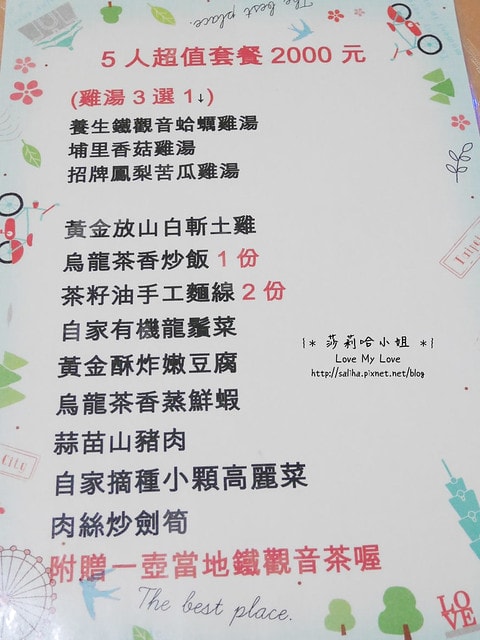 The best place.
5人超值套餐2000元
(雞湯3選1↓)
養生鐵觀音蛤蠣雞湯
埔里香菇雞湯
招牌鳳梨苦瓜雞湯
黃金放山白斬土雞
烏龍茶香炒飯1份
茶籽油手工麵線2份
自家有機龍鬚菜
黃金酥炸嫩豆腐
烏龍茶香蒸鮮蝦
蒜苗山豬肉
自家摘種小顆高麗菜
肉絲炒劍筍
附贈一壺當地鐵觀音茶喔
|* 莎莉哈小姐 *|
Love My Love
http://saliha.pixnet.net/blog
City
The best place.
LOVE